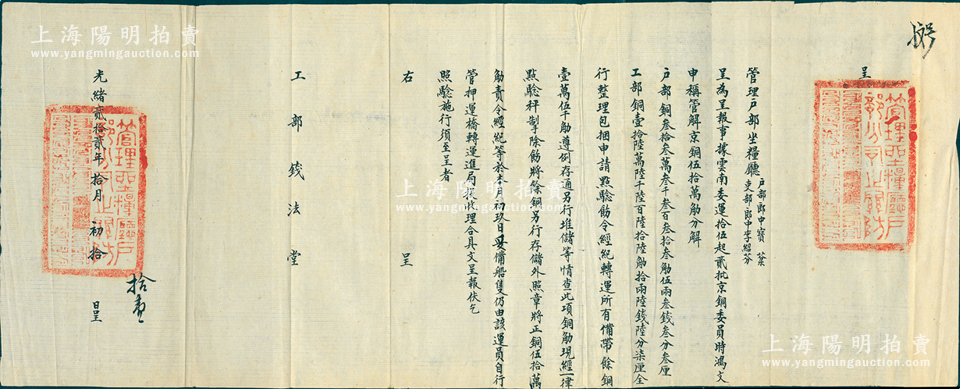 呈
管理戶部坐糧廳戶部郎中寶 棻
吏部郎中李紹芬
呈為呈報事據雲南委運拾伍起貳批京銅委員時鴻文
申稱管解京銅伍拾萬觔分解
戶部銅叁拾叁萬叁千叁百叁拾叁觔伍兩叁錢叁分叁厘
工部銅壹拾陸萬陸千陸百陸拾陸觔拾兩陸錢陸分柒厘全
行整理包捆申請點驗飭令經紀轉運所有備帶餘銅
壹萬伍千觔遵例存通另行堆儲等情查此項銅觔現經一律
點驗秤掣除飭將餘銅另行存儲外照章將正銅伍拾萬
觔責令經紀等於本月初玖日妥備船隻仍由該運員自行
管押運橋轉運進局投收理合具文呈報伏乞
照驗施行須至呈者
右 呈
工部錢法堂
光緒貳拾貳年拾月初拾 日呈
拾壹
上海陽明拍賣
www.yangmingauction.com
上海陽明拍賣
www.yangmingauction.com
上海陽明拍賣
上海陽明拍賣
www.yangmingauction.com
上海陽明拍賣
www.yangmingauction.com